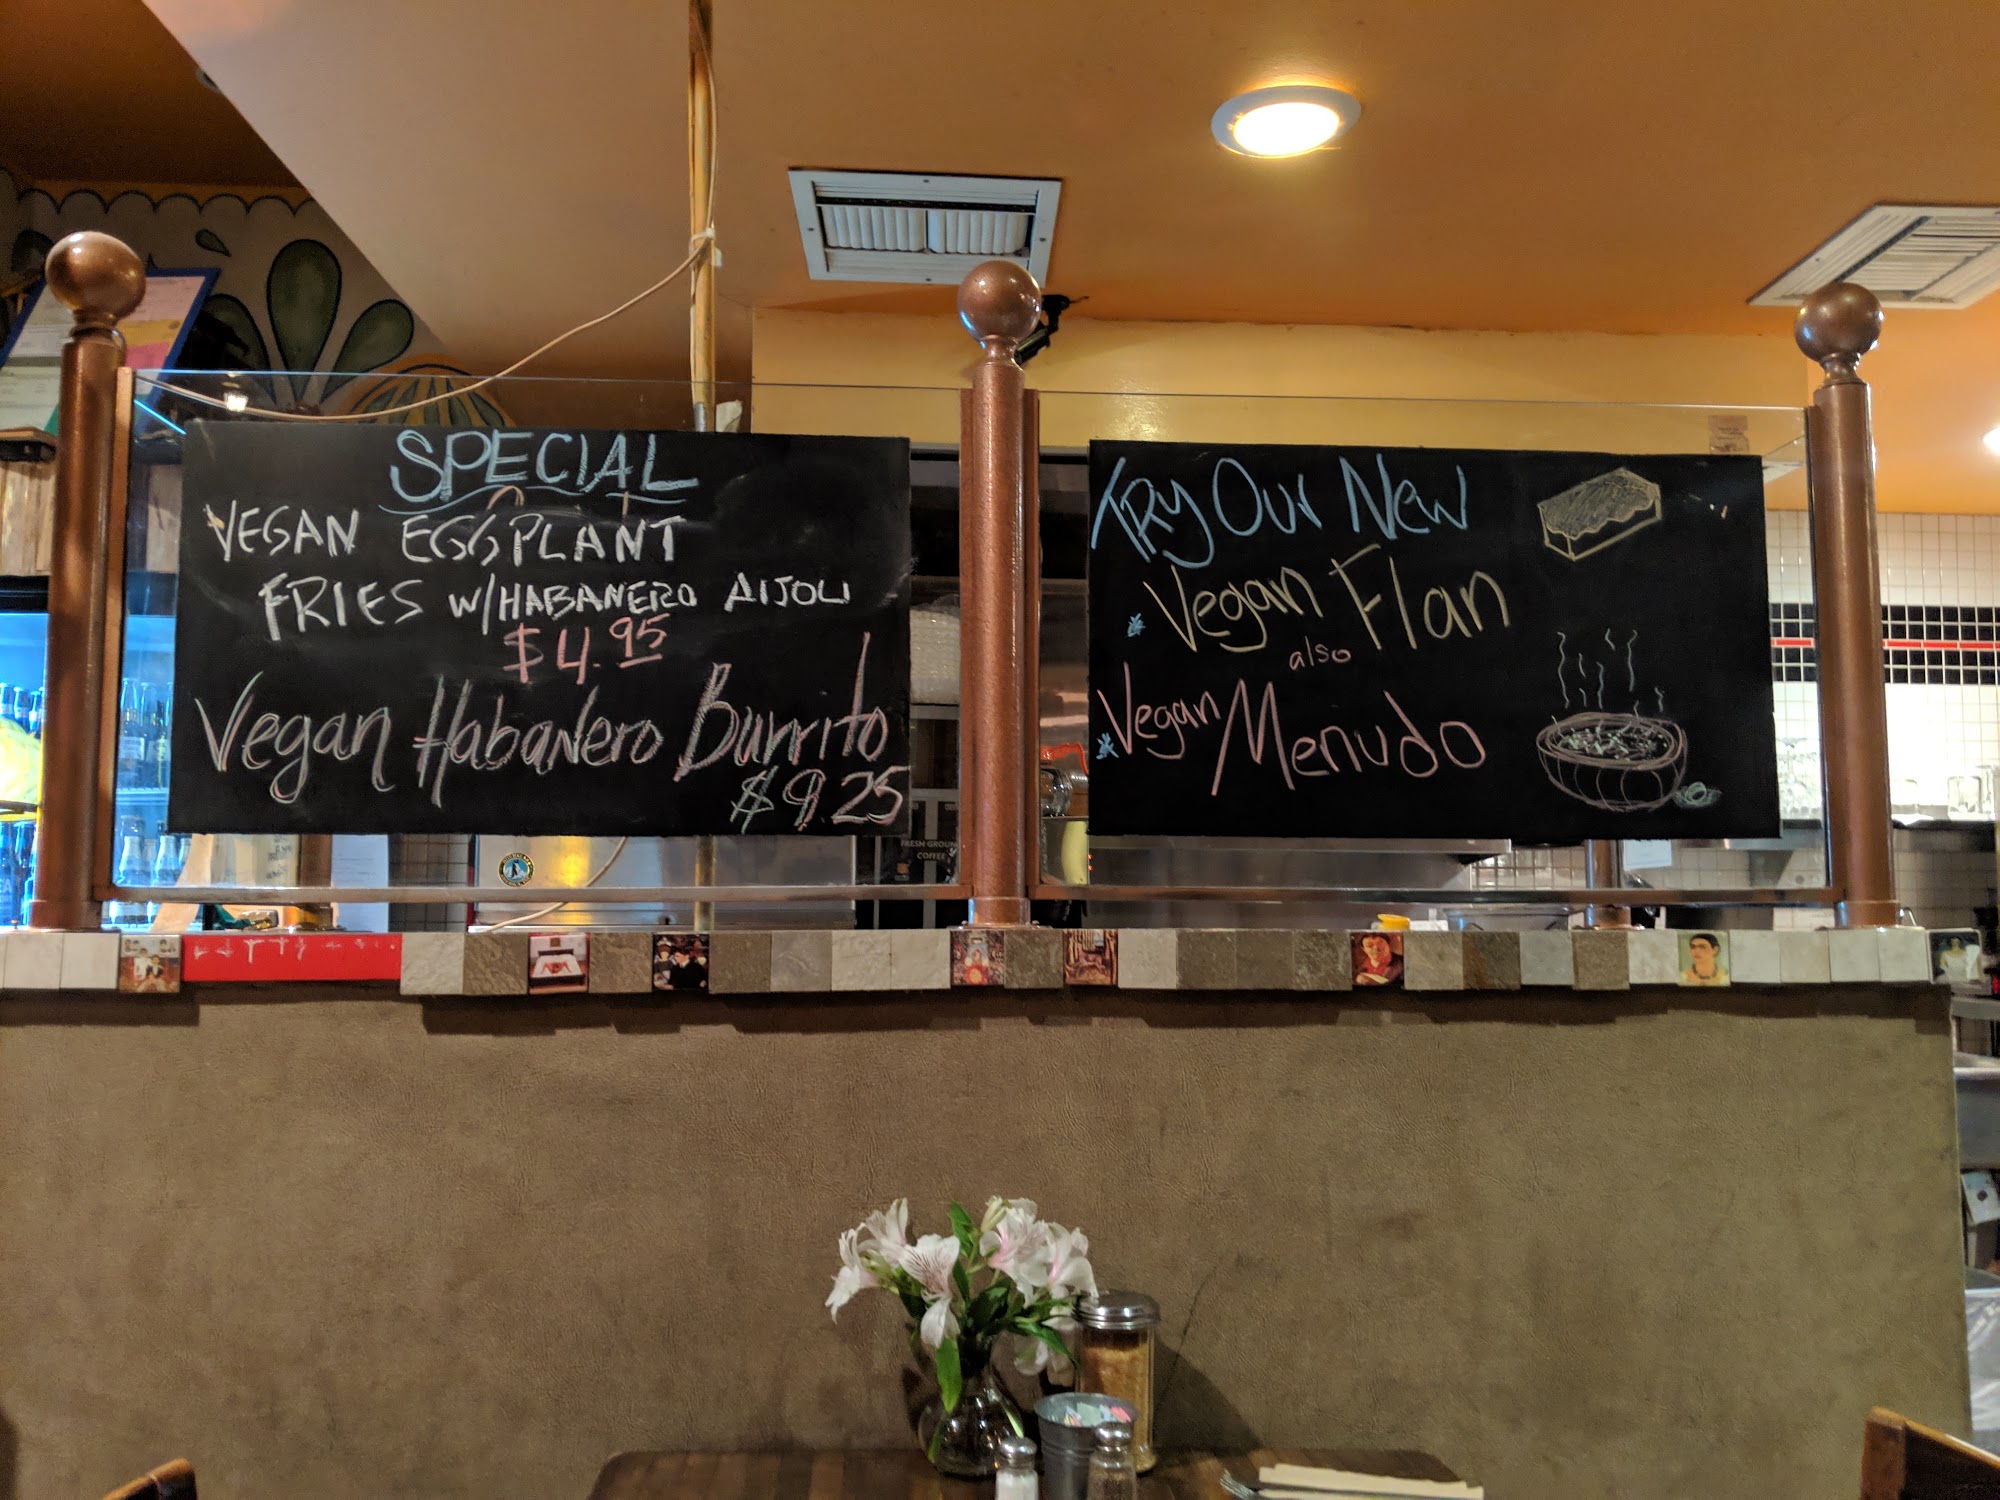 SPECIAL
VEGAN EGGPLANT
FRIES W/HABANERO AIJOLI
$4.95
Vegan Habanero Burrito
$9.25
Try Our New
Vegan Flan
also
Vegan Menudo
FRESH GROUND
COFFEE